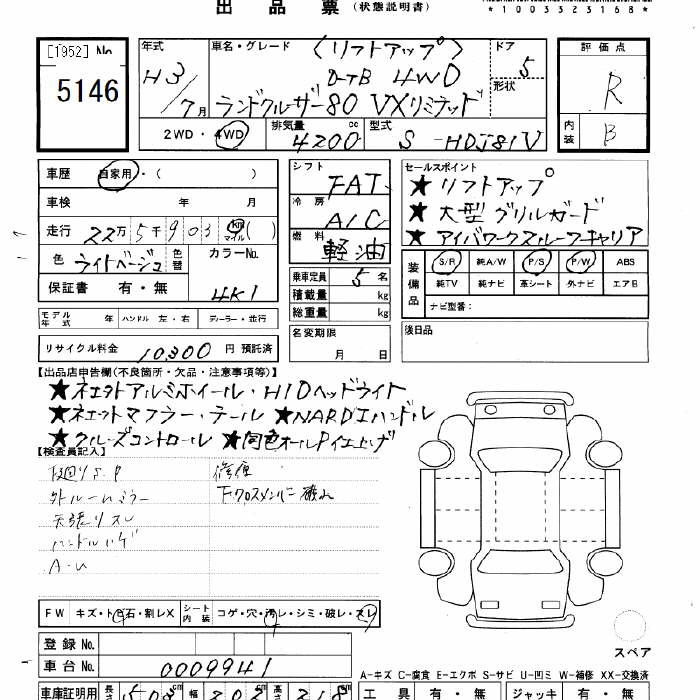 出 品 票 (状態説明書)
*1003323168*
[1952] No
5146
年式 車名・グレード (リフトアップ) ドア 評価点
H3 D-TB 4WD 5 R
7月 ランドクルーザー80 VXリミテッド 形状
2WD・4WD 排気量 4200 cc 型式 S -HDJ81V 内装 B
車歴 自家用・( ) シフト FAT セールスポイント
車検 年 月 冷房 A/C ★リフトアップ
走行 22万5千903 km マイル ( ) 燃料 軽油 ★大型グリルガード
色 ライトベージュ 色替 カラーNo. 4K1 ★アイバワークスルーフキャリア
保証書 有・無 乗車定員 5名 装備品 S/R 純A/W P/S P/W ABS
積載量 kg 純TV 純ナビ 革シート 外ナビ エアB
総重量 kg ナビ型番:
モデル年式 年 ハンドル 左・右 ディーラー・並行 名変期限 月 日 後日品
リサイクル料金 10,300 円 預託済
【出品店申告欄(不良箇所・欠品・注意事項等)】
★社外アルミホイール・HIDヘッドライト
★社外マフラー・テール ★NARDIハンドル
★クルーズコントロール ★同色オールP仕上げ
【検査員記入】
下廻りS.P 修復
外ルームミラー 下クロスメンバー破れ
天張りスレ
ハンドルハゲ
A-U
FW キズ・ト石・割レX シート内装 コゲ・穴・汚レ・シミ・破レ・スレ
登録 No.
車台 No. 0009941
スペア
A-キズ C-腐食 E-エクボ S-サビ U-凹ミ W-補修 XX-交換済
車庫証明用 長さ 508 cm 幅 202 cm 高さ 218 cm 工具 有・無 ジャッキ 有・無